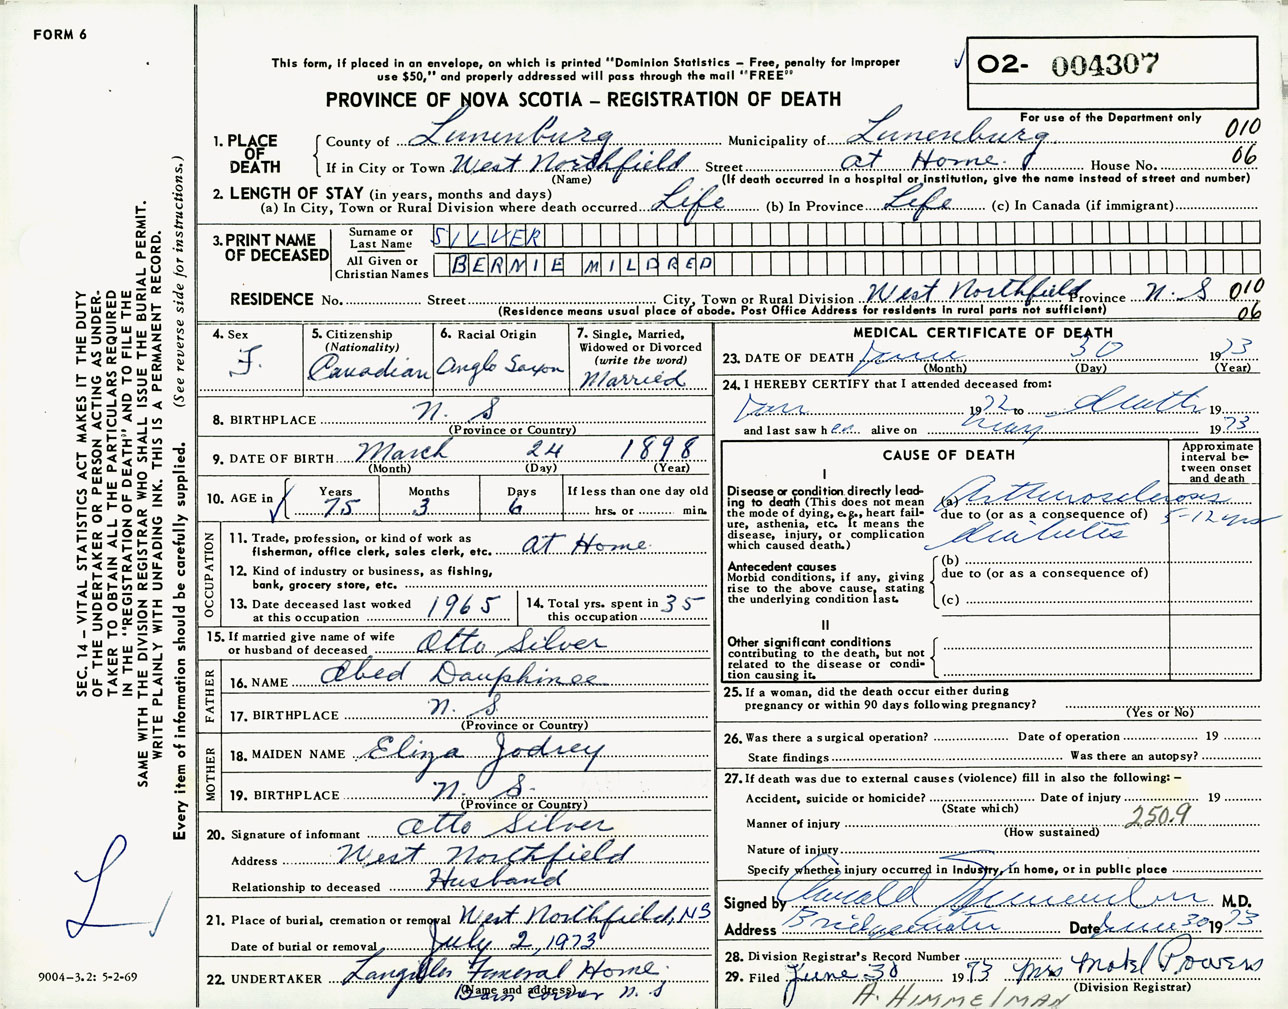 FORM 6
This form, if placed in an envelope, on which is printed "Dominion Statistics – Free, penalty for improper
use $50," and properly addressed will pass through the mail "FREE"
PROVINCE OF NOVA SCOTIA – REGISTRATION OF DEATH
O2- 004307
For use of the Department only
010
06
1. PLACE OF DEATH
County of Lunenburg Municipality of Lunenburg
If in City or Town West Northfield Street at Home. House No.
(Name) (If death occurred in a hospital or institution, give the name instead of street and number)
2. LENGTH OF STAY (in years, months and days)
(a) In City, Town or Rural Division where death occurred Life (b) In Province Life (c) In Canada (if immigrant)
3. PRINT NAME OF DECEASED
Surname or Last Name SILVER
All Given or Christian Names BERNIE MILDRED
RESIDENCE No. Street City, Town or Rural Division West Northfield Province N. S 010
06
(Residence means usual place of abode. Post Office Address for residents in rural parts not sufficient)
4. Sex
F.
5. Citizenship
(Nationality)
Canadian
6. Racial Origin
Anglo Saxon
7. Single, Married,
Widowed or Divorced
(write the word)
Married
8. BIRTHPLACE N. S
(Province or Country)
9. DATE OF BIRTH March 24 1898
(Month) (Day) (Year)
10. AGE in
Years 75
Months 3
Days 6
If less than one day old
hrs. or min.
OCCUPATION
11. Trade, profession, or kind of work as
fisherman, office clerk, sales clerk, etc. at Home.
12. Kind of industry or business, as fishing,
bank, grocery store, etc.
13. Date deceased last worked
at this occupation 1965
14. Total yrs. spent in
this occupation 35
15. If married give name of wife
or husband of deceased Otto Silver
FATHER
16. NAME Obed Dauphinee
17. BIRTHPLACE N. S.
(Province or Country)
MOTHER
18. MAIDEN NAME Eliza Jodrey
19. BIRTHPLACE N. S.
(Province or Country)
20. Signature of informant Otto Silver
Address West Northfield
Relationship to deceased Husband
21. Place of burial, cremation or removal West Northfield, NS
Date of burial or removal July 2, 1973
22. UNDERTAKER Langilles Funeral Home.
(Name and address)
Corner N. S
MEDICAL CERTIFICATE OF DEATH
23. DATE OF DEATH June 30 1973
(Month) (Day) (Year)
24. I HEREBY CERTIFY that I attended deceased from:
1972 to death 19
and last saw her alive on May 1973
CAUSE OF DEATH
Approximate
interval be-
tween onset
and death
I
Disease or condition directly lead-
ing to death (This does not mean
the mode of dying, e.g., heart fail-
ure, asthenia, etc. It means the
disease, injury, or complication
which caused death.)
(a) Arteriosclerosis
due to (or as a consequence of) 5-12 yrs
diabetes
Antecedent causes
Morbid conditions, if any, giving
rise to the above cause, stating
the underlying condition last.
(b)
due to (or as a consequence of)
(c)
II
Other significant conditions
contributing to the death, but not
related to the disease or condi-
tion causing it.
25. If a woman, did the death occur either during
pregnancy or within 90 days following pregnancy?
(Yes or No)
26. Was there a surgical operation? Date of operation 19
State findings Was there an autopsy?
27. If death was due to external causes (violence) fill in also the following: –
Accident, suicide or homicide? Date of injury 19
(State which)
Manner of injury 250.9
(How sustained)
Nature of injury
Specify whether injury occurred in Industry, in home, or in public place
Signed by M.D.
Address Bridgewater Date June 30 1973
28. Division Registrar's Record Number
29. Filed June 30 1973 Mrs Mabel Powers
(Division Registrar)
A. HIMMELMAN
SEC. 14 – VITAL STATISTICS ACT MAKES IT THE DUTY
OF THE UNDERTAKER OR PERSON ACTING AS UNDER-
TAKER TO OBTAIN ALL THE PARTICULARS REQUIRED
IN THE "REGISTRATION OF DEATH" AND TO FILE THE
SAME WITH THE DIVISION REGISTRAR WHO SHALL ISSUE THE BURIAL PERMIT.
WRITE PLAINLY WITH UNFADING INK. THIS IS A PERMANENT RECORD.
Every item of information should be carefully supplied. (See reverse side for instructions.)
L
9004-3.2: 5-2-69